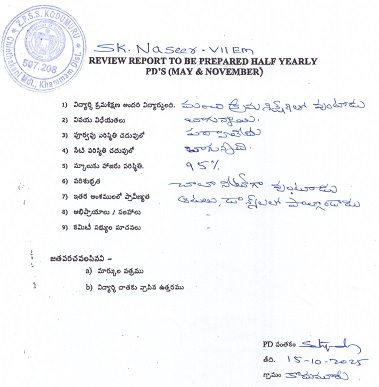 Z.P.S.S. KODUMURU
Chinthakani Mdl., Khammam Dist.
507.208
SK. Naseer - VII Em
REVIEW REPORT TO BE PREPARED HALF YEARLY
PD'S (MAY & NOVEMBER)
1) విద్యార్థి క్రమశిక్షణ అందరి విద్యార్థులది. మంచి క్రమశిక్షణలో వుంటాడు
2) వినయ విధేయతలు బాగున్నాయి.
3) పూర్వపు పరిస్థితి చదువులో పర్వాలేదు
4) నేటి పరిస్థితి చదువులో బాగున్నది.
5) స్కూలుకు హాజరు పరిస్థితి. 95%
6) పరిశుభ్రత చాలా నీట్‌గా వుంటాడు
7) ఇతర అంశములలో ప్రావీణ్యత ఆటలు, డాన్స్‌లలో పాల్గొంటాడు
8) అభిప్రాయాలు / సలహాలు
9) కమిటీ సభ్యుల సూచనలు
జతపరచవలసినవి -
a) మార్కుల పత్రము
b) విద్యార్థి దాతకు వ్రాసిన ఉత్తరము
PD సంతకం
తేది. 15-10-2025
గ్రామం కొదుమూరు